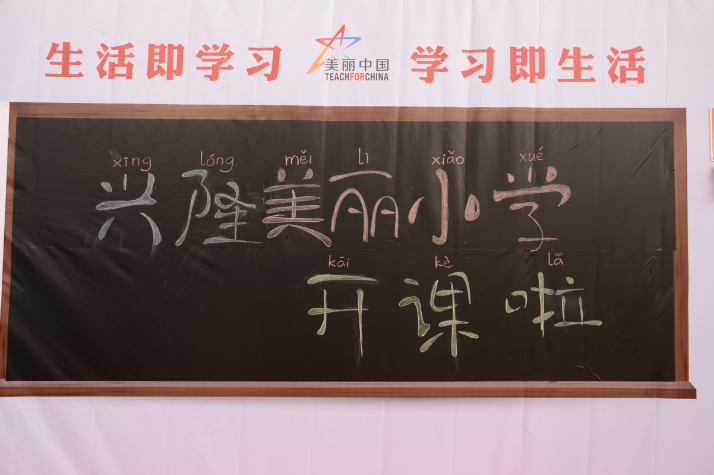 生活即学习 美丽中国 学习即生活
TEACHFORCHINA
xīng lóng měi lì xiǎo xué
兴隆美丽小学
kāi kè lā
开课啦